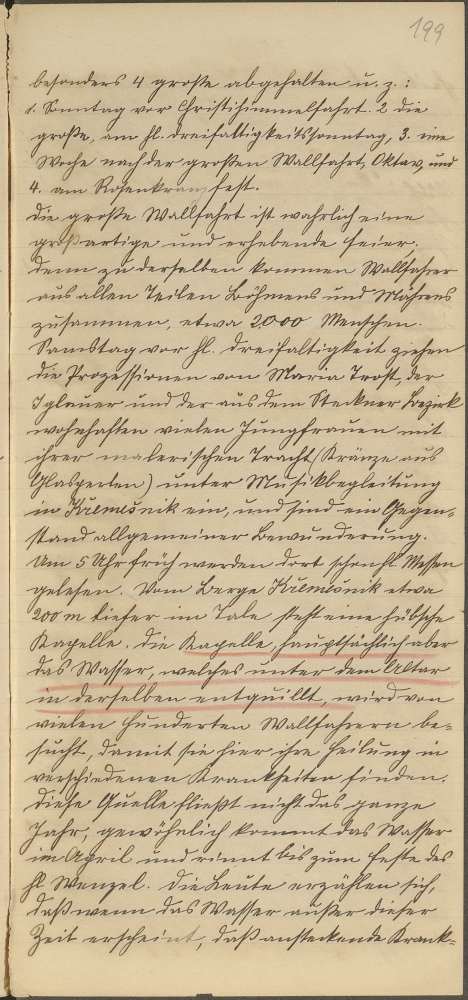 199
besonders 4 große abgehalten u. z.:
1. Sonntag vor Christihimmelfahrt. 2 die
große, am hl. Dreifaltigkeitssonntag, 3. eine
Woche nach der großen Wallfahrt, Oktav, und
4. am Rosenkranzfest.
Die große Wallfahrt ist wahrlich eine
großartige und erhebende Feier.
Denn zu derselben kommen Wallfahrer
aus allen Teilen Böhmens und Mährens
zusammen, etwa 2000 Menschen.
Samstag vor hl. Dreifaltigkeit ziehen
die Prozessionen von Maria Trost, der
Iglauer und der aus dem Steckner Bezirk
wohnhaften vielen Jungfrauen mit
ihrer malerischen Tracht (Kränze aus
Glasperlen) unter Musikbegleitung
in Křemešnik ein, und sind ein Gegen=
stand allgemeiner Bewunderung.
Um 5 Uhr früh werden dort schon hl. Messen
gelesen. Vom Berge Křemešnik etwa
200 m tiefer im Tale steht eine hübsche
Kapelle. Die Kapelle, hauptsächlich aber
das Wasser, welches unter dem Altar
in derselben entquillt, wird von
vielen Hunderten Wallfahrern be=
sucht, damit sie hier ihre Heilung in
verschiedenen Krankheiten finden.
Diese Quelle fließt nicht das ganze
Jahr, gewöhnlich kommt das Wasser
im April und rinnt bis zum Feste des
hl. Wenzel. Die Leute erzählen sich,
daß wenn das Wasser außer dieser
Zeit erscheint, daß ansteckende Krank=